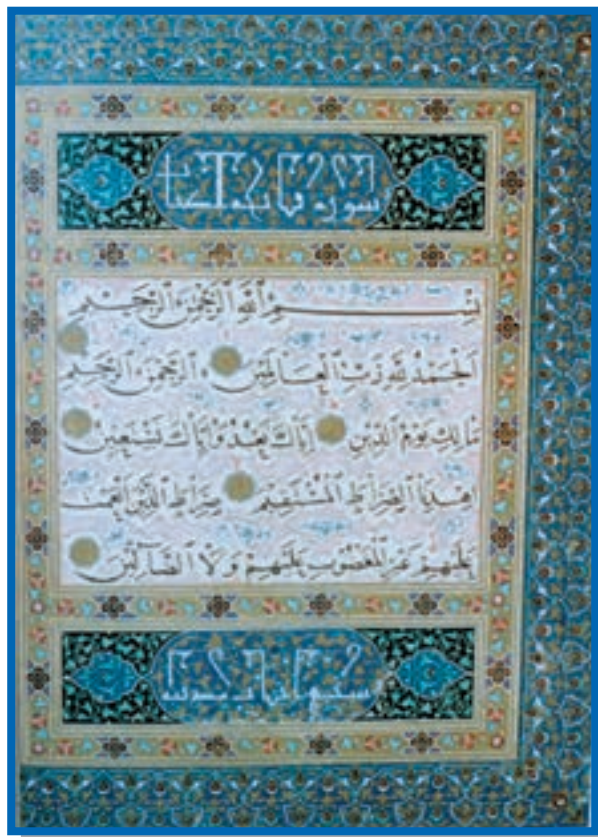 سورة فاتحة الكتاب
بِسْمِ ٱللَّهِ ٱلرَّحْمَٰنِ ٱلرَّحِيمِ
ٱلْحَمْدُ لِلَّهِ رَبِّ ٱلْعَالَمِينَ ٱلرَّحْمَٰنِ ٱلرَّحِيمِ
مَالِكِ يَوْمِ ٱلدِّينِ إِيَّاكَ نَعْبُدُ وَإِيَّاكَ نَسْتَعِينُ
اهْدِنَا ٱلصِّرَاطَ ٱلْمُسْتَقِيمَ صِرَاطَ ٱلَّذِينَ أَنْعَمْتَ
عَلَيْهِمْ غَيْرِ ٱلْمَغْضُوبِ عَلَيْهِمْ وَلَا ٱلضَّآلِّينَ